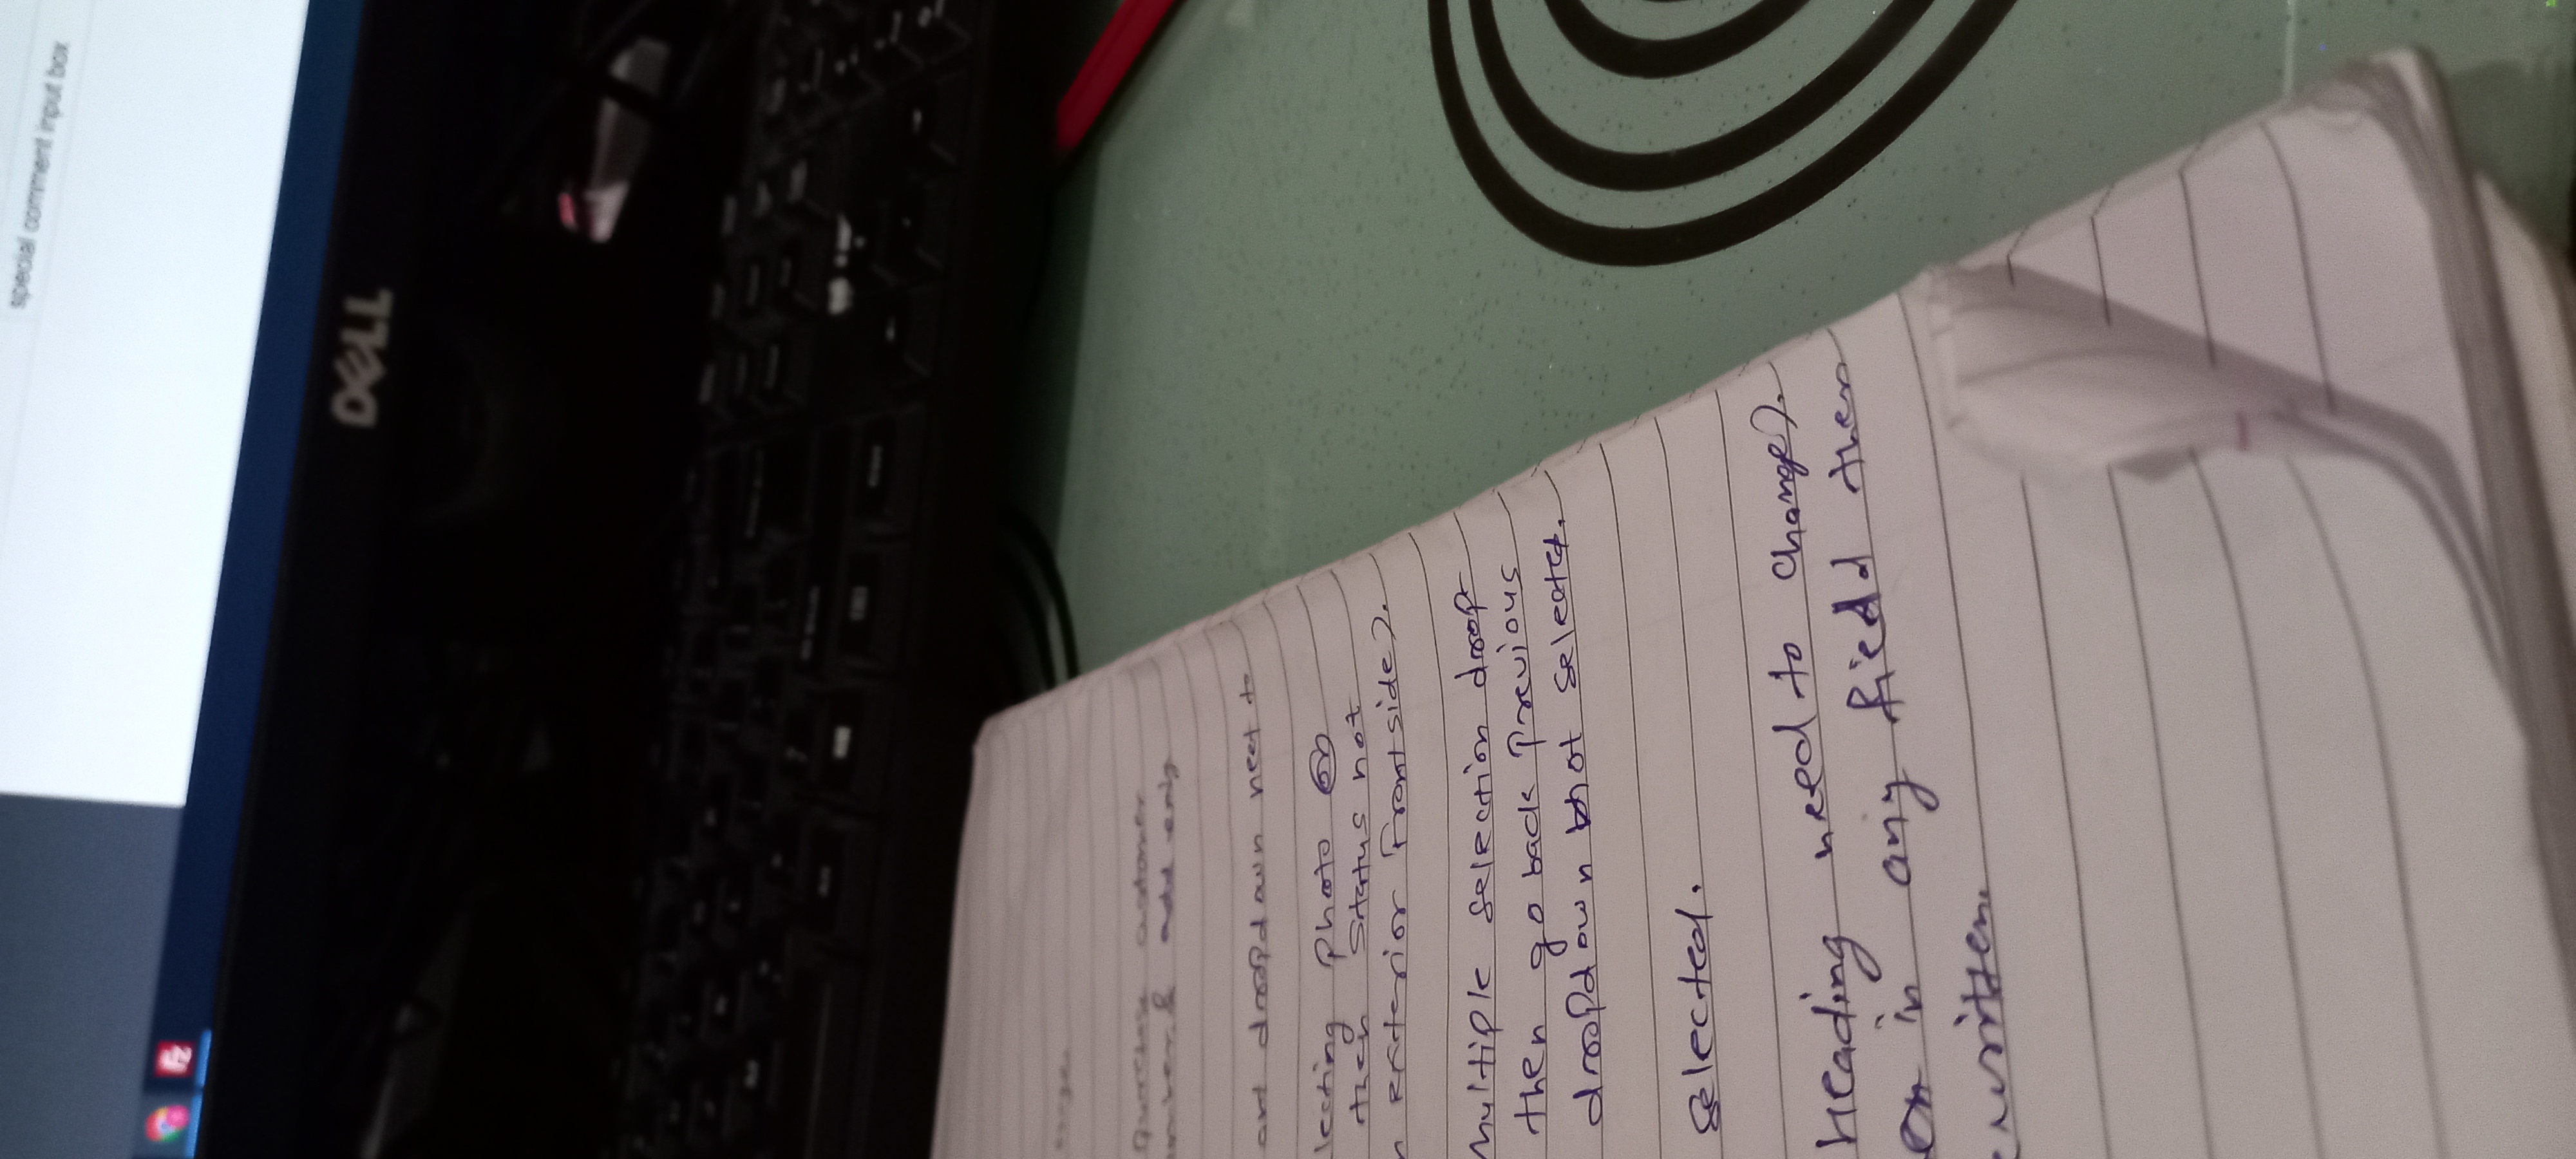 special comment input box
FZ
DELL
customer
& add
dropdown neet to
lecting photo
then Status not
n Exterior Frontside).
Multiple selection drop
then go back Previous
dropdown not selected.
selected.
Heading need to change).
in any field then
written.